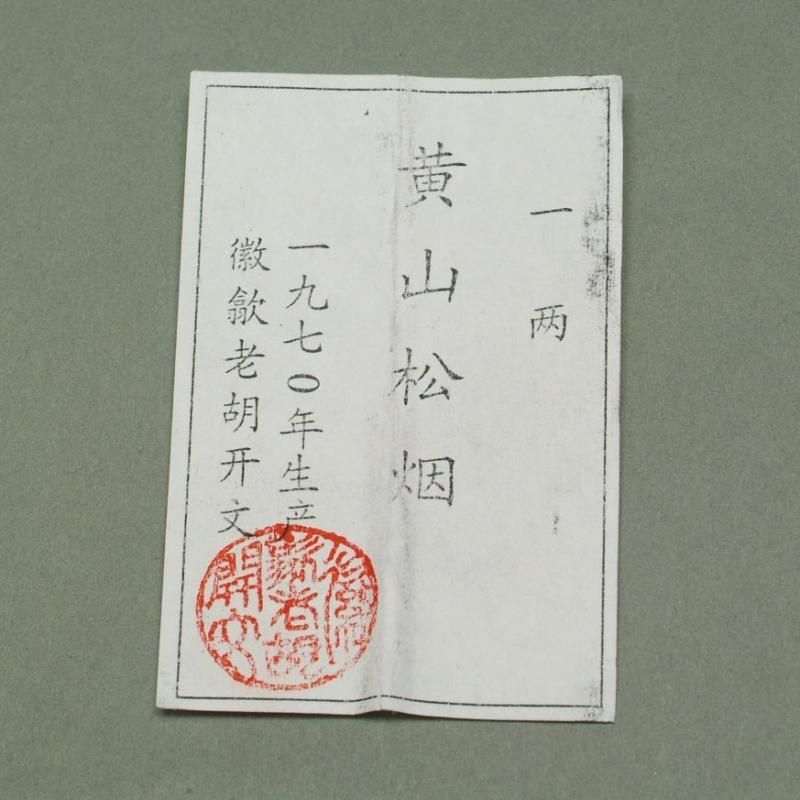 一两
黄山松烟
一九七〇年生产
徽歙老胡开文
徽歙老胡開文